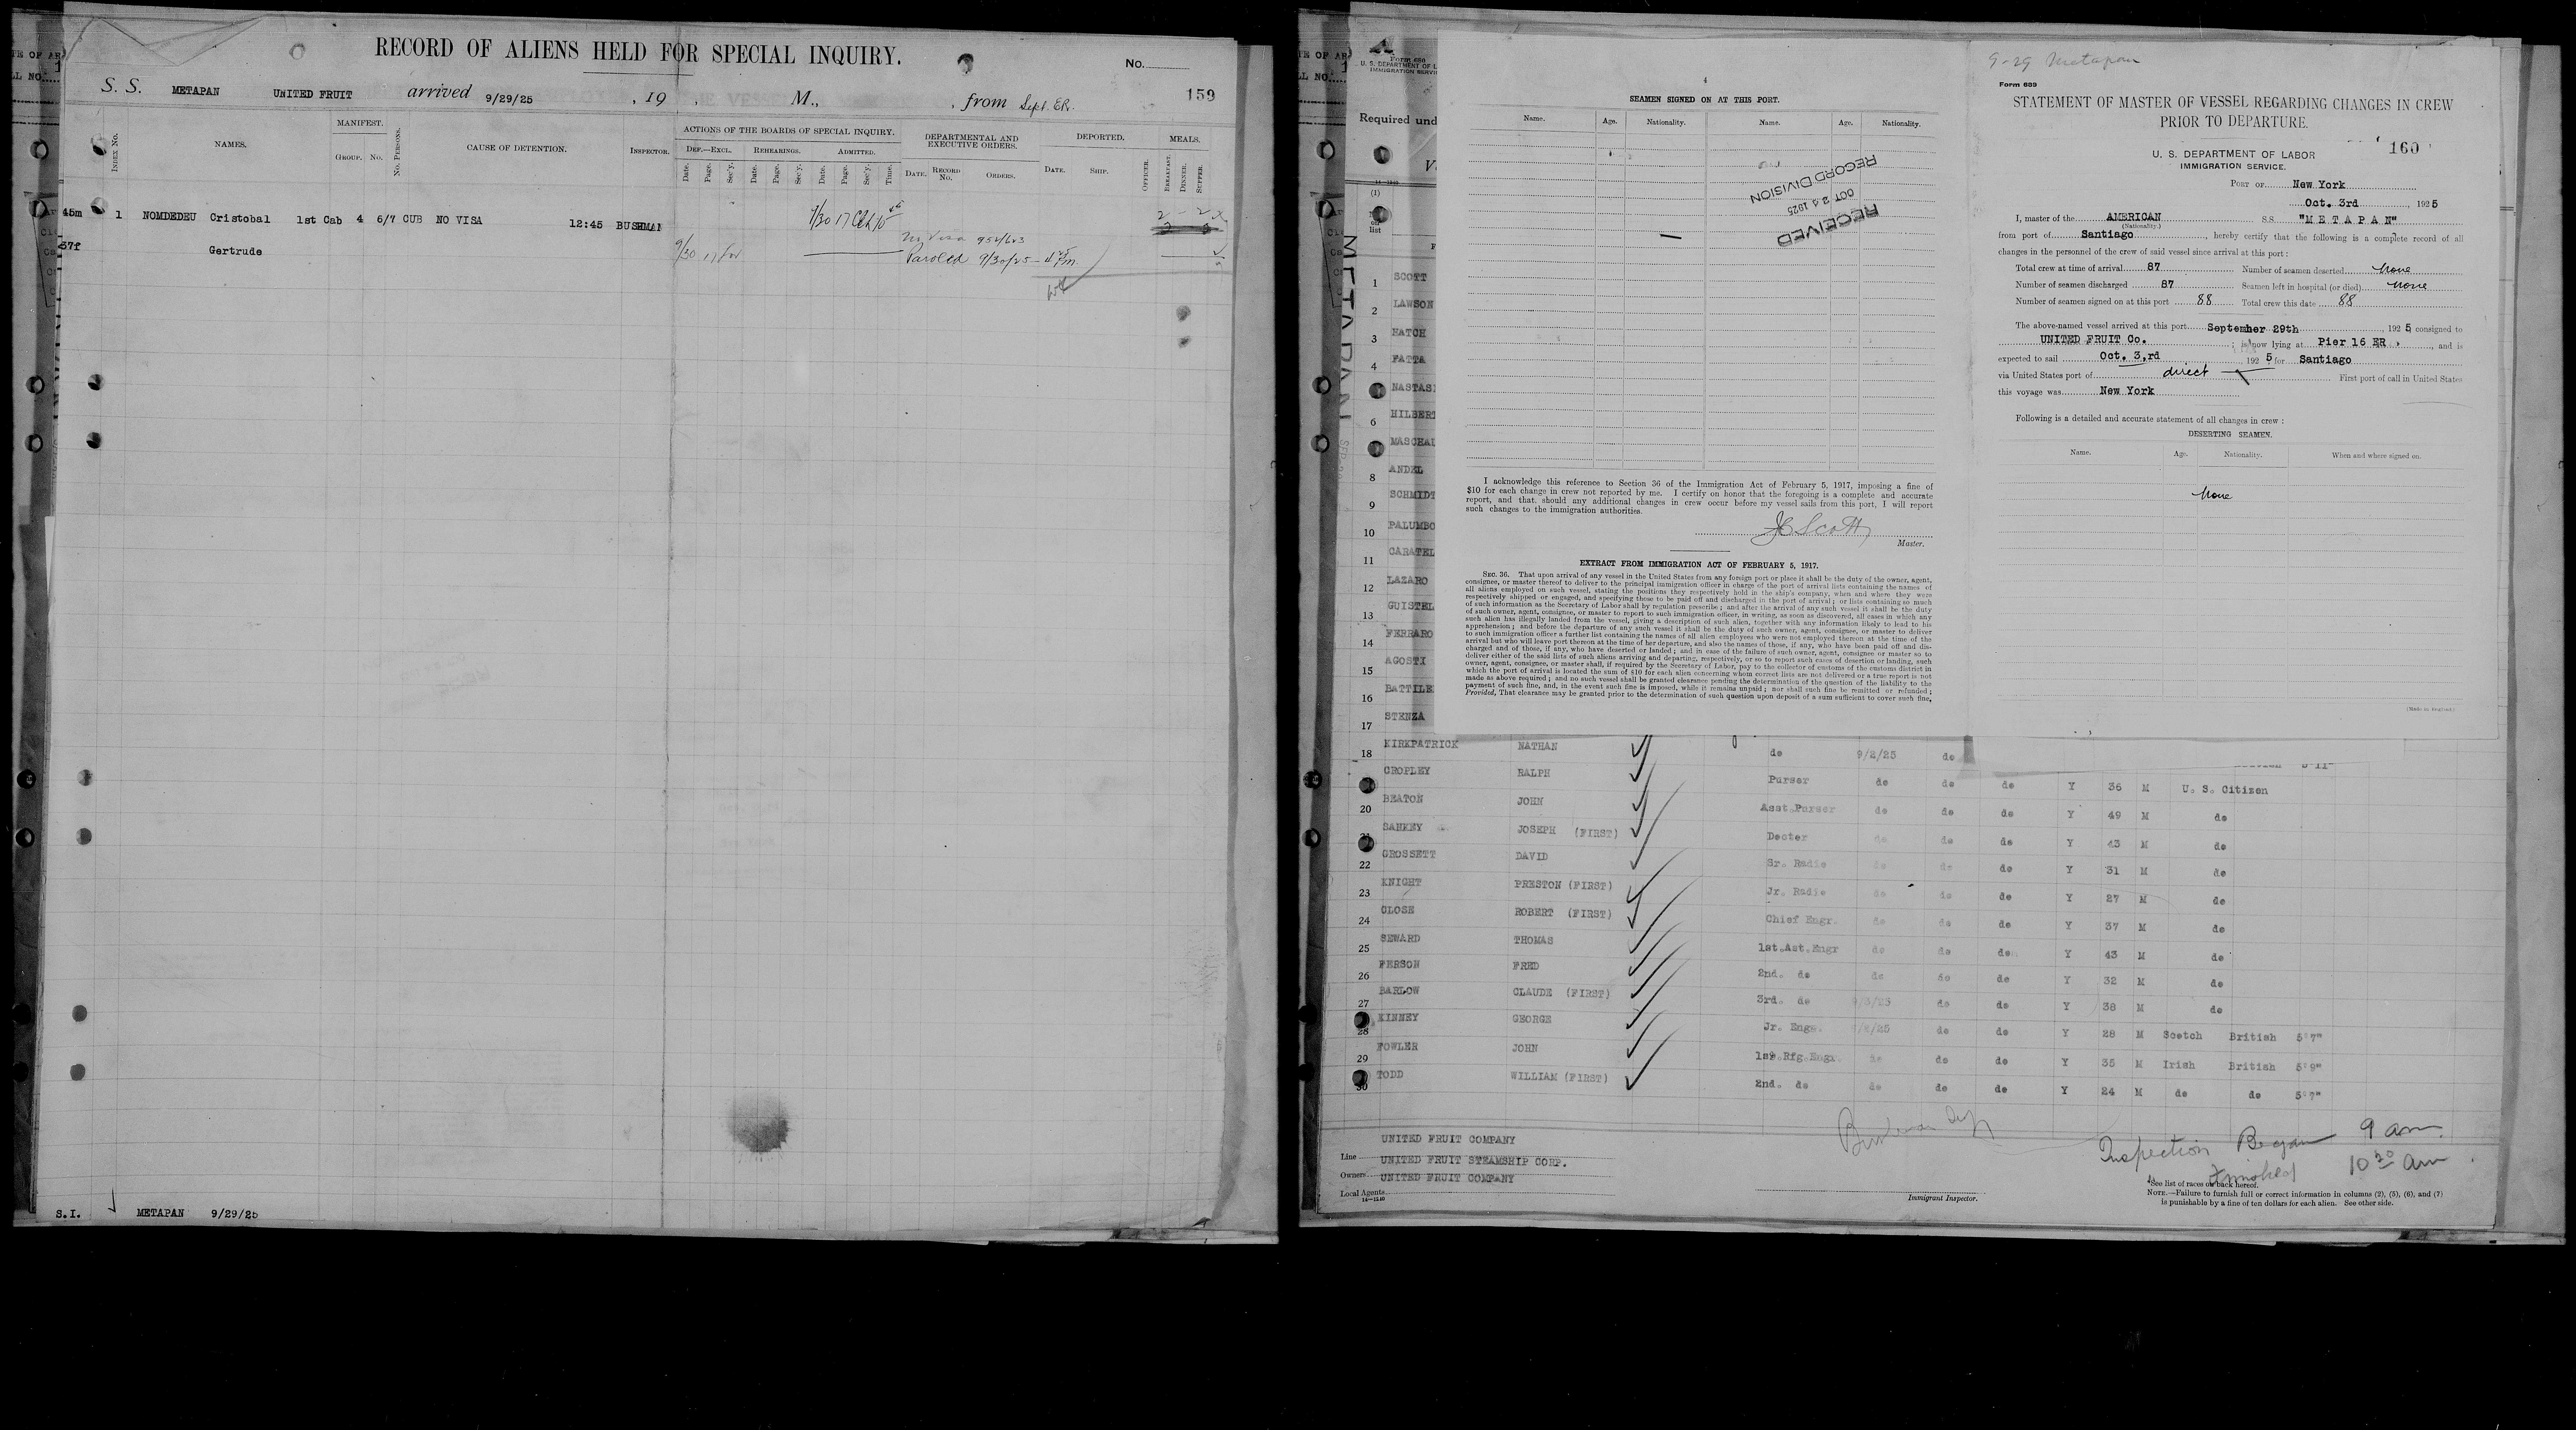 RECORD OF ALIENS HELD FOR SPECIAL INQUIRY.
No.
S. S. METAPAN UNITED FRUIT arrived 9/29/25, 19 , M., , from
159
INDEX No.
NAMES.
MANIFEST.
GROUP. No.
No. PERSONS.
CAUSE OF DETENTION.
INSPECTOR.
ACTIONS OF THE BOARDS OF SPECIAL INQUIRY.
DEF.—EXCL. REHEARINGS. ADMITTED.
Date. Page. Sec'y. Date. Page. Sec'y. Date. Page. Sec'y. Time.
DEPARTMENTAL AND EXECUTIVE ORDERS.
DATE. RECORD No. ORDERS.
DEPORTED.
DATE. SHIP.
OFFICER.
MEALS.
BREAKFAST. DINNER. SUPPER.
45m 1 NOMDEDEU Cristobal 1st Cab 4 6/7 CUB NO VISA 12:45 BUSHMAN 9/30 17
37f Gertrude 9/30 17
Paroled 9/30/25
S.I. METAPAN 9/29/25
4
SEAMEN SIGNED ON AT THIS PORT.
Name. Age. Nationality. Name. Age. Nationality.
RECEIVED
OCT 24 1925
RECORD DIVISION
I acknowledge this reference to Section 36 of the Immigration Act of February 5, 1917, imposing a fine of
$10 for each change in crew not reported by me. I certify on honor that the foregoing is a complete and accurate
report, and that, should any additional changes in crew occur before my vessel sails from this port, I will report
such changes to the immigration authorities.
Scott
Master.
EXTRACT FROM IMMIGRATION ACT OF FEBRUARY 5, 1917.
SEC. 36. That upon arrival of any vessel in the United States from any foreign port or place it shall be the duty of the owner, agent,
consignee, or master thereof to deliver to the principal immigration officer in charge of the port of arrival lists containing the names of
all aliens employed on such vessel, stating the positions they respectively hold in the ship's company, when and where they were
respectively shipped or engaged, and specifying those to be paid off and discharged in the port of arrival; or lists containing so much
of such information as the Secretary of Labor shall by regulation prescribe; and after the arrival of any such vessel it shall be the duty
of such owner, agent, consignee, or master to report to such immigration officer, in writing, as soon as discovered, all cases in which any
such alien has illegally landed from the vessel, giving a description of such alien, together with any information likely to lead to his
apprehension; and before the departure of any such vessel it shall be the duty of such owner, agent, consignee, or master to deliver
to such immigration officer a further list containing the names of all alien employees who were not employed thereon at the time of the
arrival but who will leave port thereon at the time of her departure, and also the names of those, if any, who have been paid off and dis-
charged and of those, if any, who have deserted or landed; and in case of the failure of such owner, agent, consignee or master so to
deliver either of the said lists of such aliens arriving and departing, respectively, or so to report such cases of desertion or landing, such
owner, agent, consignee, or master shall, if required by the Secretary of Labor, pay to the collector of customs of the customs district in
which the port of arrival is located the sum of $10 for each alien concerning whom correct lists are not delivered or a true report is not
made as above required; and no such vessel shall be granted clearance pending the determination of the question of the liability to the
payment of such fine, and, in the event such fine is imposed, while it remains unpaid; nor shall such fine be remitted or refunded;
Provided, That clearance may be granted prior to the determination of such question upon deposit of a sum sufficient to cover such fine.
9-29 Metapan
Form 689
STATEMENT OF MASTER OF VESSEL REGARDING CHANGES IN CREW
PRIOR TO DEPARTURE.
160
U. S. DEPARTMENT OF LABOR
IMMIGRATION SERVICE.
PORT OF New York
Oct. 3rd, 1925
I, master of the AMERICAN S.S. "METAPAN"
(Nationality.)
from port of Santiago, hereby certify that the following is a complete record of all
changes in the personnel of the crew of said vessel since arrival at this port:
Total crew at time of arrival 87 Number of seamen deserted None
Number of seamen discharged 87 Seamen left in hospital (or died) none
Number of seamen signed on at this port 88 Total crew this date 88
The above-named vessel arrived at this port September 29th, 1925 consigned to
UNITED FRUIT Co.; is now lying at Pier 16 ER, and is
expected to sail Oct. 3,rd 1925 for Santiago
via United States port of direct First port of call in United States
this voyage was New York
Following is a detailed and accurate statement of all changes in crew:
DESERTING SEAMEN.
Name. Age. Nationality. When and where signed on.
None
(Made in England.)
Form 680
Required und
(1)
list
METAPAN
1 SCOTT
2 LAWSON
3 HATCH
4 FATTA
NASTAS
6 HILBERT
MASCHAL
8 ANDEL
9 SCHMIDT
10 PALUMBO
11 CARATEL
12 LAZARO
13 GUISTEL
14 FERRARO
15 AGOSTI
16 BATTILE
17 STENZA
18 KIRKPATRICK NATHAN do 9/2/25 do
CROPLEY RALPH Purser do do do Y 36 M U. S. Citizen
20 BEATON JOHN Asst.Purser do do do Y 49 M do
21 SAHKEY JOSEPH (FIRST) Docter do do do Y 43 M do
22 GROSSETT DAVID Sr. Radio do do do Y 31 M do
23 KNIGHT PRESTON (FIRST) Jr. Radio do do do Y 27 M do
24 CLOSE ROBERT (FIRST) Chief Engr. do do do Y 37 M do
25 SEWARD THOMAS 1st.Ast.Engr do do do Y 43 M do
26 PERSON FRED 2nd. do do do do Y 32 M do
27 BARLOW CLAUDE (FIRST) 3rd. do 9/3/25 do do Y 38 M do
28 KINNEY GEORGE Jr. Engr. 9/2/25 do do Y 28 M Scotch British 5'7"
29 FOWLER JOHN 1st.Rfg.Engr. do do do Y 35 M Irish British 5'9"
30 TODD WILLIAM (FIRST) 2nd. do do do do Y 24 M do do 5'7"
Inspection Began 9 am.
Finished 10 30 am
Line UNITED FRUIT COMPANY
Owners UNITED FRUIT STEAMSHIP CORP.
Local Agents UNITED FRUIT COMPANY
14—1540
Immigrant Inspector.
See list of races on back hereof.
NOTE.—Failure to furnish full or correct information in columns (2), (5), (6), and (7)
is punishable by a fine of ten dollars for each alien. See other side.